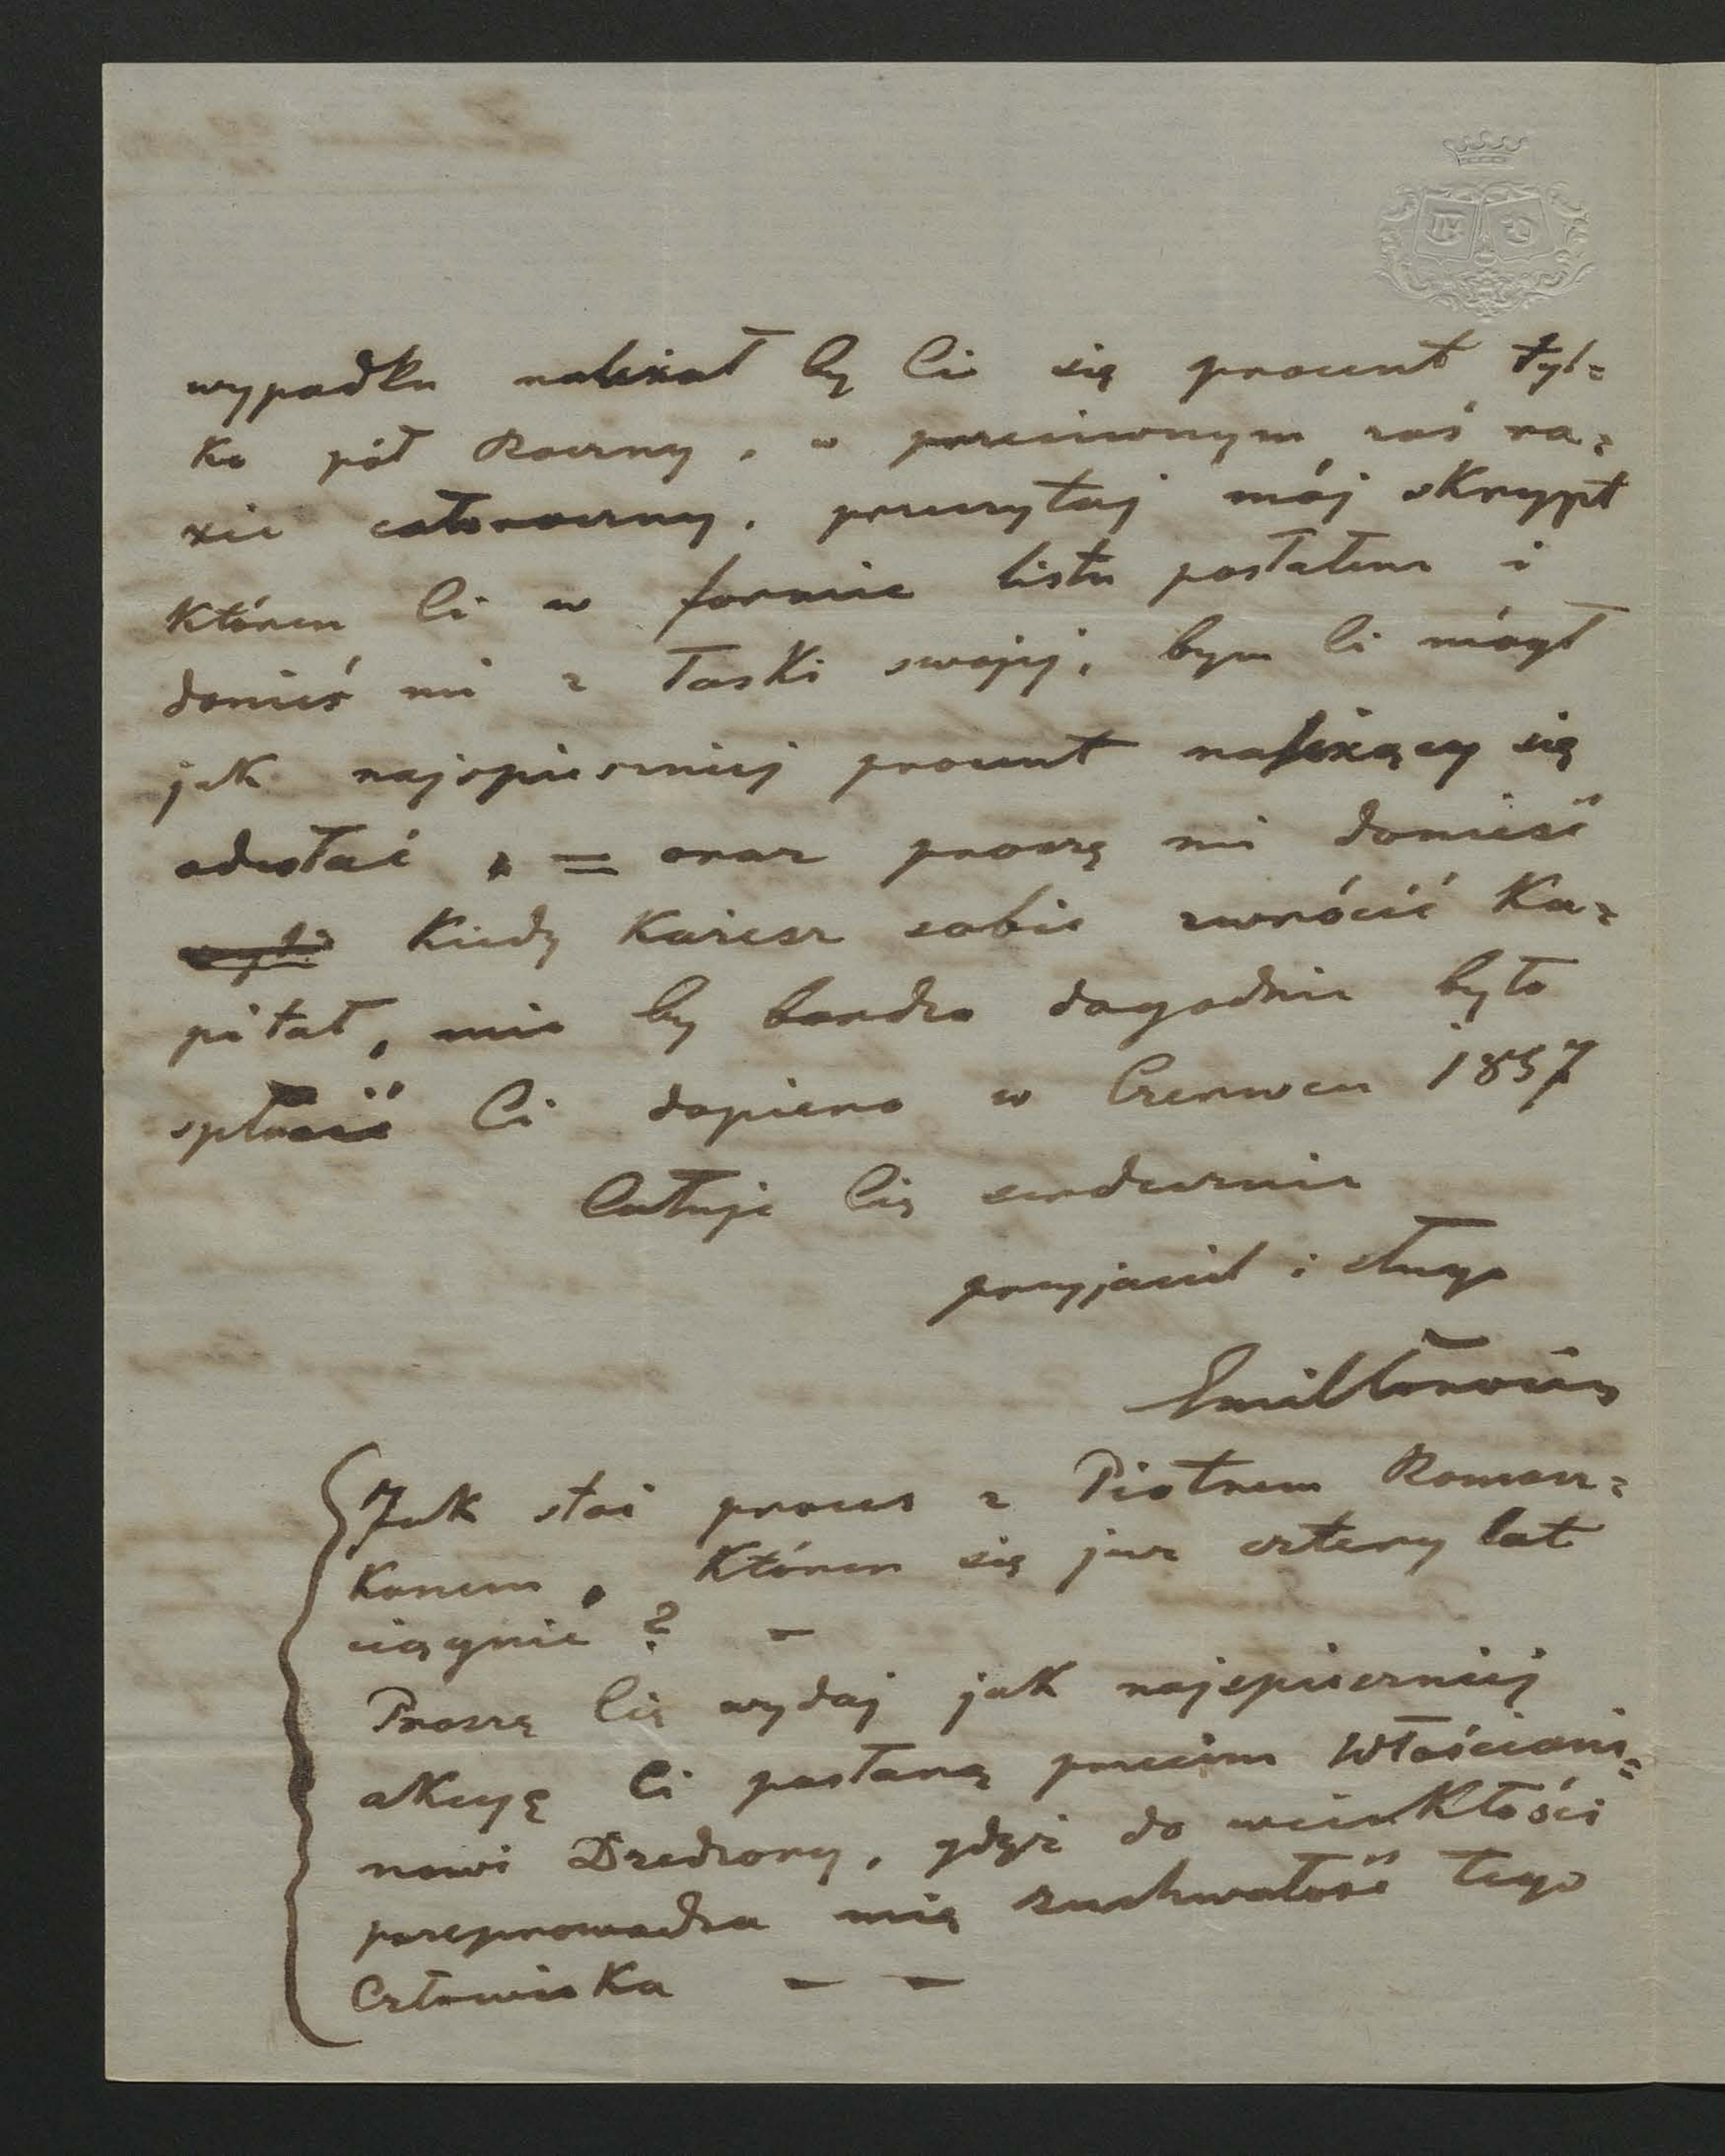 wypadku należał by Ci się procent tyl=
ko pół Roczny, w przeciwnym zaś ra=
zie całoroczny. przeczytaj mój skrypt
któren Ci w formie listu posłałem i
donieś mi z łaski swojej, bym Ci mógł
jak najspieszniej procent należący się
odesłać, = oraz proszę mi donieść
Kiedy Każesz sobie zwrócić Ka=
pitał, mie by bardzo dogodnie było
spłacić Ci dopiero w Czerwcu 1857
Całuję Cię serdecznie
przyjaciel i sługa
Emil
Jak stoi proces z Piotrem Romasz=
kanem, któren się już cztery lat
ciągnie? –
Proszę Cię wydaj jak najspieszniej
akcyę Ci posłaną przeciw Włościani=
nowi gdyż do wściekłości
przeprowadza mię zuchwałość tego
Człowieka – –